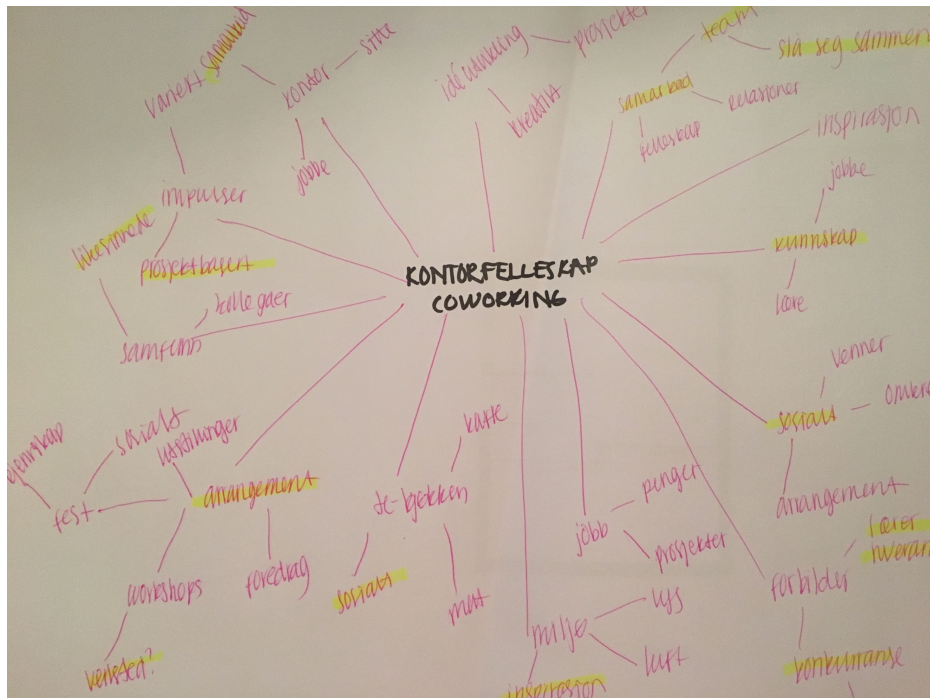 KONTORFELLESKAP
COWORKING
variert samarbeid
kontor
sitte
jobbe
impulser
likesinnede
prosjektbasert
samfunn
kollegaer
idéutvikling
prosjekter
kreativt
samarbeid
team
slå seg sammen
relasjoner
felleskap
inspirasjon
kunnskap
jobbe
lære
sosialt
venner
arrangement
forbilder
lærer
konkurranse
jobb
penger
prosjekter
miljø
lys
luft
inspirasjon
te-kjøkken
kaffe
sosialt
mat
arrangement
utstillinger
sosialt
fest
workshops
verksted?
foredrag